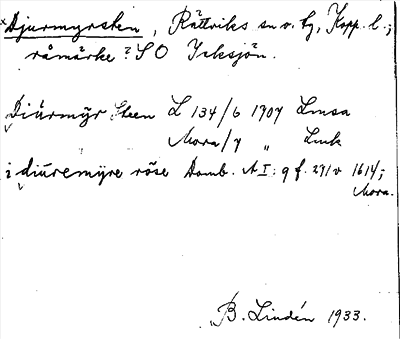 *Djurmyrsten, Rättviks sn o. tg, Kopp. l.;
råmärke ? SO Icksjön.
Diürmÿr Steen L 134/6 1707 Lmsa
Mora/7 „ Lmk
i diüremÿre röse Domb. A I: 9 f. 291 v 1614;
Mora.
B. Lindén 1933.